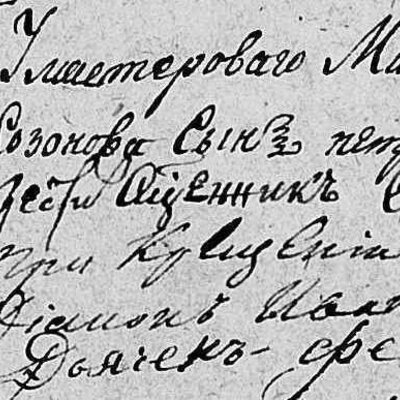 У мастероваго Ма
Созонова Сынъ пет
Священникъ
при Крещеніи
Діаконъ Иван
Дьячекъ фе